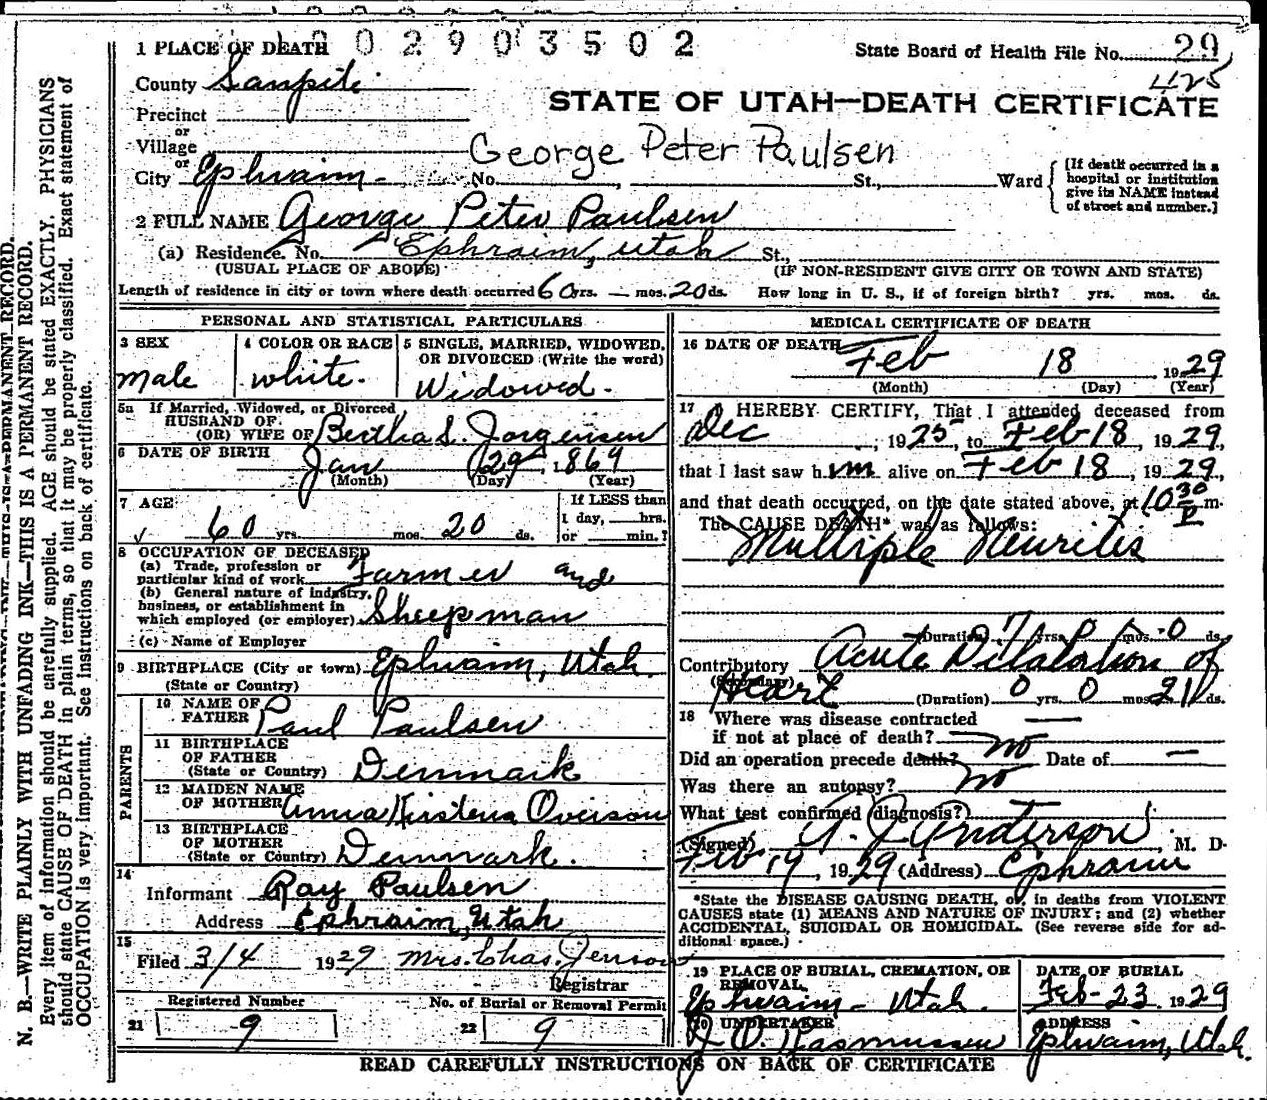 1 PLACE OF DEATH 002903502 State Board of Health File No. 29
County Sanpete 425
STATE OF UTAH—DEATH CERTIFICATE
Precinct
or
Village
George Peter Paulsen
or
City Ephraim No. , St., Ward
[If death occurred in a hospital or institution give its NAME instead of street and number.]
2 FULL NAME George Peter Paulsen
(a) Residence. No. Ephraim, Utah St.,
(USUAL PLACE OF ABODE) (IF NON-RESIDENT GIVE CITY OR TOWN AND STATE)
Length of residence in city or town where death occurred 60 yrs. — mos. 20 ds. How long in U. S., if of foreign birth? yrs. mos. ds.
PERSONAL AND STATISTICAL PARTICULARS
3 SEX
Male
4 COLOR OR RACE
White.
5 SINGLE, MARRIED, WIDOWED, OR DIVORCED (Write the word)
Widowed.
5a If Married, Widowed, or Divorced
HUSBAND OF
(OR) WIFE OF Bertha S. Jorgensen
6 DATE OF BIRTH Jan 29 1869
(Month) (Day) (Year)
7 AGE
60 yrs. mos. 20 ds.
If LESS than
1 day, hrs.
or min.?
8 OCCUPATION OF DECEASED
(a) Trade, profession or
particular kind of work Farmer and
(b) General nature of industry,
business, or establishment in
which employed (or employer) Sheepman
(c) Name of Employer
9 BIRTHPLACE (City or town) Ephraim, Utah.
(State or Country)
PARENTS
10 NAME OF
FATHER Paul Paulsen
11 BIRTHPLACE
OF FATHER
(State or Country) Denmark
12 MAIDEN NAME
OF MOTHER Anna Kirstena Overson
13 BIRTHPLACE
OF MOTHER
(State or Country) Denmark.
14
Informant Ray Paulsen
Address Ephraim, Utah
15
Filed 3/4 1929 Mrs. Chas. Jenson
Registrar
Registered Number No. of Burial or Removal Permit
21 9 22 9
MEDICAL CERTIFICATE OF DEATH
16 DATE OF DEATH Feb 18 1929
(Month) (Day) (Year)
17 I HEREBY CERTIFY, That I attended deceased from
Dec , 1925, to Feb 18, 1929,
that I last saw him alive on Feb 18, 1929,
and that death occurred, on the date stated above, at 10 30 P m.
The CAUSE DEATH* was as follows:
Multiple Neuritis
(Duration) 7 yrs. 0 mos. 0 ds.
Contributory Acute Dilatation of
(Secondary)
Heart (Duration) 0 yrs. 0 mos. 21 ds.
18 Where was disease contracted
if not at place of death? —
Did an operation precede death? no Date of —
Was there an autopsy? no
What test confirmed diagnosis?
(Signed) A. J. Anderson, M. D.
Feb 19, 1929 (Address) Ephraim
*State the DISEASE CAUSING DEATH, or, in deaths from VIOLENT
CAUSES state (1) MEANS AND NATURE OF INJURY; and (2) whether
ACCIDENTAL, SUICIDAL OR HOMICIDAL. (See reverse side for ad-
ditional space.)
19 PLACE OF BURIAL, CREMATION, OR
REMOVAL
Ephraim - Utah.
DATE OF BURIAL
Feb-23 1929
20 UNDERTAKER
O. Rasmussen
ADDRESS
Ephraim, Utah.
READ CAREFULLY INSTRUCTIONS ON BACK OF CERTIFICATE
N. B.—WRITE PLAINLY WITH UNFADING INK—THIS IS A PERMANENT RECORD.
Every item of information should be carefully supplied. AGE should be stated EXACTLY. PHYSICIANS
should state CAUSE OF DEATH in plain terms, so that it may be properly classified. Exact statement of
OCCUPATION is very important. See instructions on back of certificate.